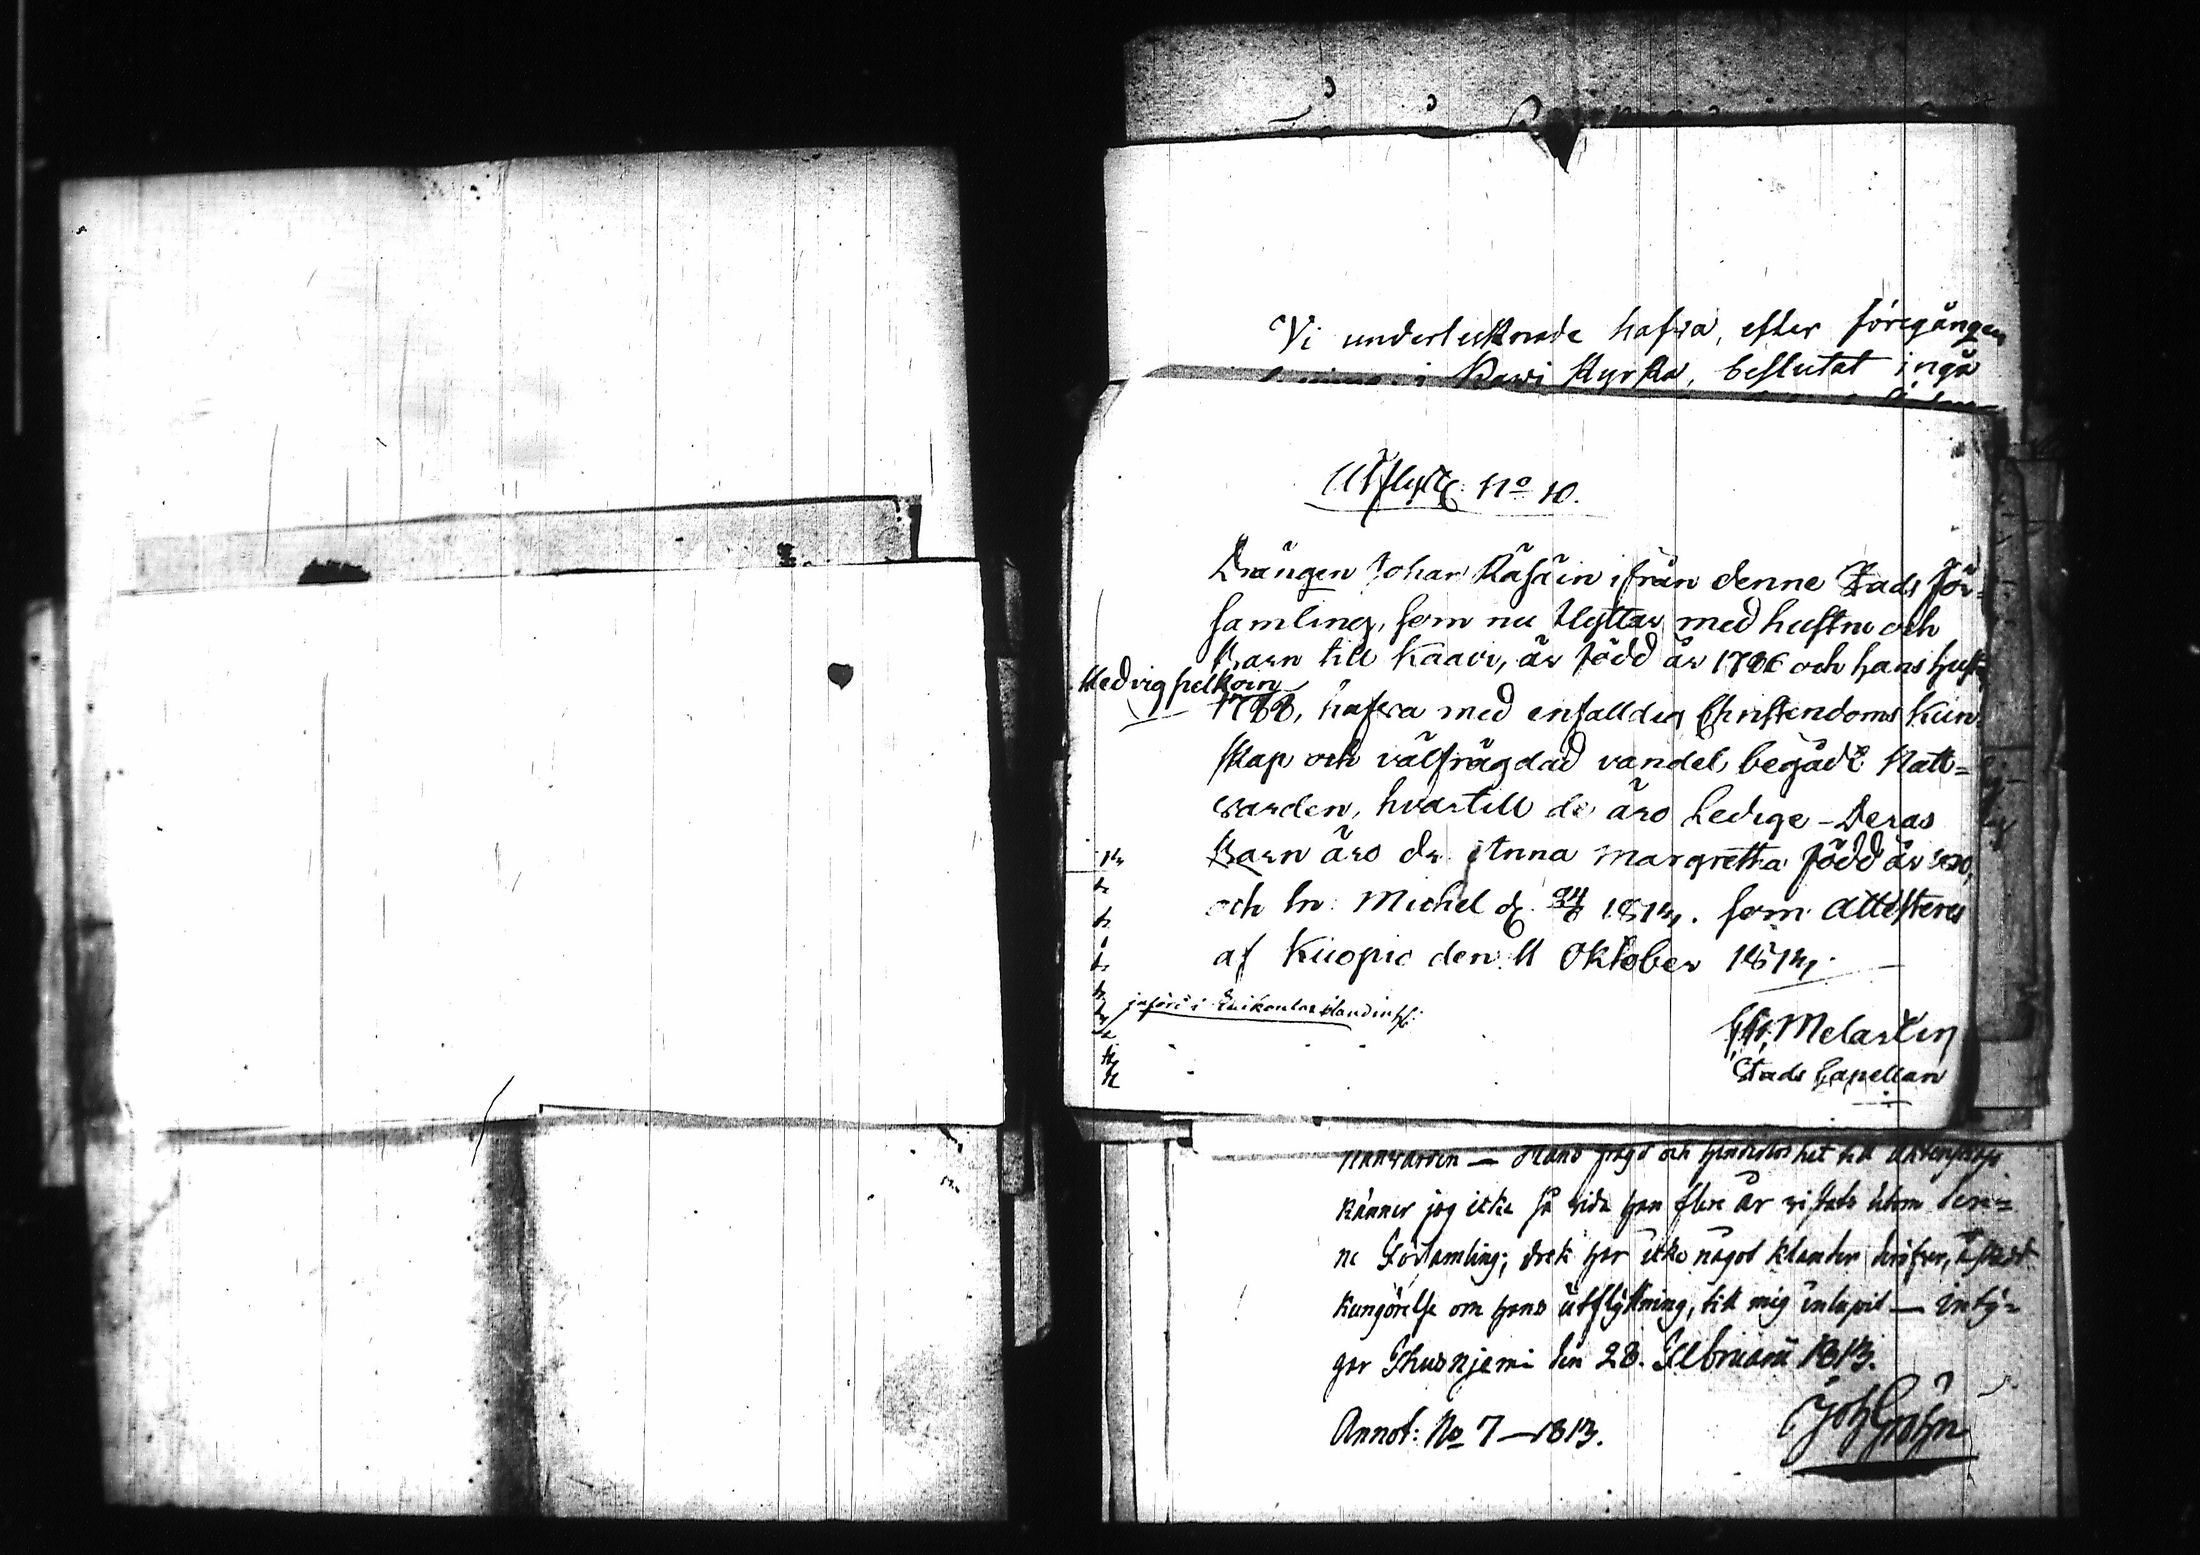 Vi undertecknade hafva, efter föregången
i Kavi Kyrka, beslutat ingå
Utflyttn: No 10.
Drängen Johan Räsäin ifrån denne Stads För-
samling, som nu flyttar med hustru och
Barn till Kaavi, är född år 1786 och hans hust
Hedvig Pelkoin
1788, hafva med enfalldig Christendoms Kun
skap och välfrägdad vandel begådt Natt=
varden, hvartill de äro Ledige - Deras
Barn äro dr. Anna Margretha född år 1810,
och sn. Michel d. 24/6 1813. som attesteras
af Kuopio den 11 Oktober 1813.
införd i
Melartin
Stads Capellan
Nattvarden — Hans frägd och hinderlöshet till Äktenskap
känner jag icke så vida han flere år vistats utom den=
ne Församling; dock har icke något klander deröfver,
kungörelse om hans utflyttning, till mig inlupit — inty=
gar Idensalmi den 28. Februarii 1813.
Annot: No 7 — 1813.
Joh Gröhn